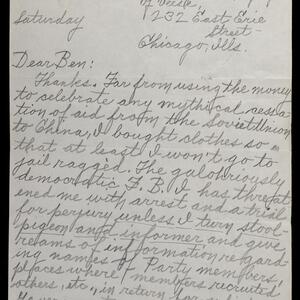 232 East Erie
Street—
Saturday
Chicago, Ills.
Dear Ben:
Thanks. Far from using the money
to celebrate any mythical cessa-
tion of aid from the Soviet Union
to China, I bought clothes so
that at least I won't go to
jail ragged. The galohriously
democratic F.B.I. has threat
ened me with arrest and a trial
for perjury unless I turn stool-
pigeon and informer and give
reams of information regard-
ing names of Party members,
places where "members recruited
others, etc., in return for